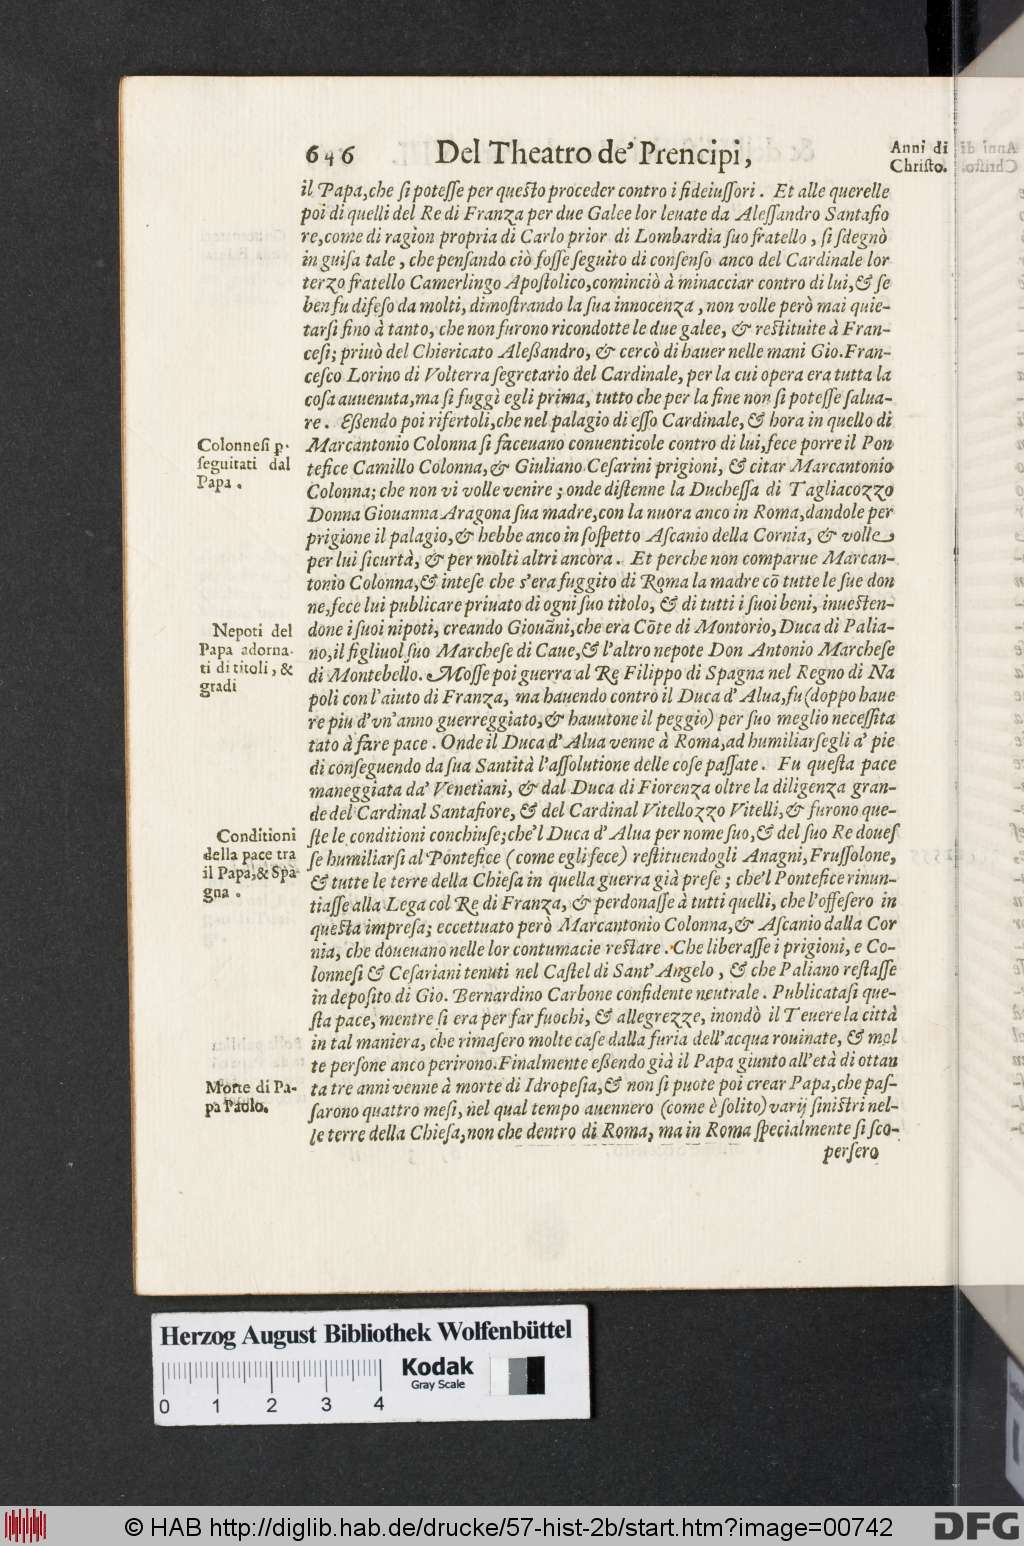 646 Del Theatro de' Prencipi,
Anni di
Christo.
il Papa, che si potesse per questo proceder contro i fideiussori. Et alle querelle
poi di quelli del Re di Franza per due Galee lor leuate da Alessandro Santafio
re, come di ragion propria di Carlo prior di Lombardia suo fratello, si sdegnò
in guisa tale, che pensando ciò fosse seguito di consenso anco del Cardinale lor
terzo fratello Camerlingo Apostolico, cominciò à minacciar contro di lui, & se
ben fu difeso da molti, dimostrando la sua innocenza, non volle però mai quie-
tarsi fino à tanto, che non furono ricondotte le due galee, & restituite à Fran-
cesi; priuò del Chiericato Aleßandro, & cercò di hauer nelle mani Gio. Fran-
cesco Lorino di Volterra segretario del Cardinale, per la cui opera era tutta la
cosa auuenuta, ma si fuggì egli prima, tutto che per la fine non si potesse salua-
re. Eßendo poi rifertoli, che nel palagio di esso Cardinale, & hora in quello di
Marcantonio Colonna si faceuano conuenticole contro di lui, fece porre il Pon
tefice Camillo Colonna, & Giuliano Cesarini prigioni, & citar Marcantonio
Colonna; che non vi volle venire; onde distenne la Duchessa di Tagliacozzo
Donna Giouanna Aragona sua madre, con la nuora anco in Roma, dandole per
prigione il palagio, & hebbe anco in sospetto Ascanio della Cornia, & volle
per lui sicurtà, & per molti altri ancora. Et perche non comparue Marcan-
tonio Colonna, & intese che s'era fuggito di Roma la madre cõ tutte le sue don
ne, fece lui publicare priuato di ogni suo titolo, & di tutti i suoi beni, inuesten-
done i suoi nipoti, creando Giouãni, che era Cõte di Montorio, Duca di Palia-
no, il figliuol suo Marchese di Caue, & l'altro nepote Don Antonio Marchese
di Montebello. Mosse poi guerra al Re Filippo di Spagna nel Regno di Na
poli con l'aiuto di Franza, ma hauendo contro il Duca d'Alua, fu (doppo haue
re piu d'vn'anno guerreggiato, & hauutone il peggio) per suo meglio necessita
tato à fare pace. Onde il Duca d'Alua venne à Roma, ad humiliarsegli a' pie
di conseguendo da sua Santità l'assolutione delle cose passate. Fu questa pace
maneggiata da' Venetiani, & dal Duca di Fiorenza oltre la diligenza gran-
de del Cardinal Santafiore, & del Cardinal Vitellozzo Vitelli, & furono que-
ste le conditioni conchiuse; che'l Duca d'Alua per nome suo, & del suo Re doues
se humiliarsi al Pontefice (come egli fece) restituendogli Anagni, Frussolone,
& tutte le terre della Chiesa in quella guerra già prese; che'l Pontefice rinun-
tiasse alla Lega col Re di Franza, & perdonasse à tutti quelli, che l'offesero in
questa impresa; eccettuato però Marcantonio Colonna, & Ascanio dalla Cor
nia, che doueuano nelle lor contumacie restare. Che liberasse i prigioni, e Co-
lonnesi & Cesariani tenuti nel Castel di Sant'Angelo, & che Paliano restasse
in deposito di Gio. Bernardino Carbone confidente neutrale. Publicatasi que-
sta pace, mentre si era per far fuochi, & allegrezze, inondò il Teuere la città
in tal maniera, che rimasero molte case dalla furia dell'acqua rouinate, & mol
te persone anco perirono. Finalmente eßendo già il Papa giunto all'età di ottan
ta tre anni venne à morte di Idropesia, & non si puote poi crear Papa, che pas-
sarono quattro mesi, nel qual tempo auennero (come è solito) varij sinistri nel-
le terre della Chiesa, non che dentro di Roma, ma in Roma specialmente si sco-
persero
Colonnesi p.
seguitati dal
Papa.
Nepoti del
Papa adorna-
ti di titoli, &
gradi
Conditioni
della pace tra
il Papa, & Spa
gna.
Morte di Pa-
pa Paolo.
Herzog August Bibliothek Wolfenbüttel
Kodak
Gray Scale
0 1 2 3 4
© HAB http://diglib.hab.de/drucke/57-hist-2b/start.htm?image=00742
DFG